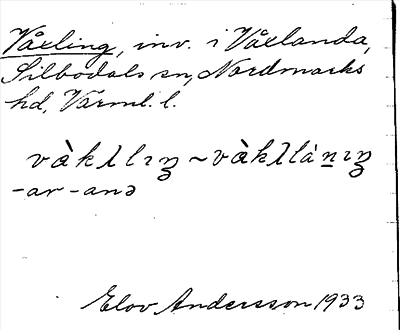 Våxling, inv. i Våxlanda,
Silbodals sn, Nordmarks
hd, Värml. l.
vàkʎlıŋ ~ vàkʎlàn̲ıŋ
-ar -anə
Elov Andersson 1933